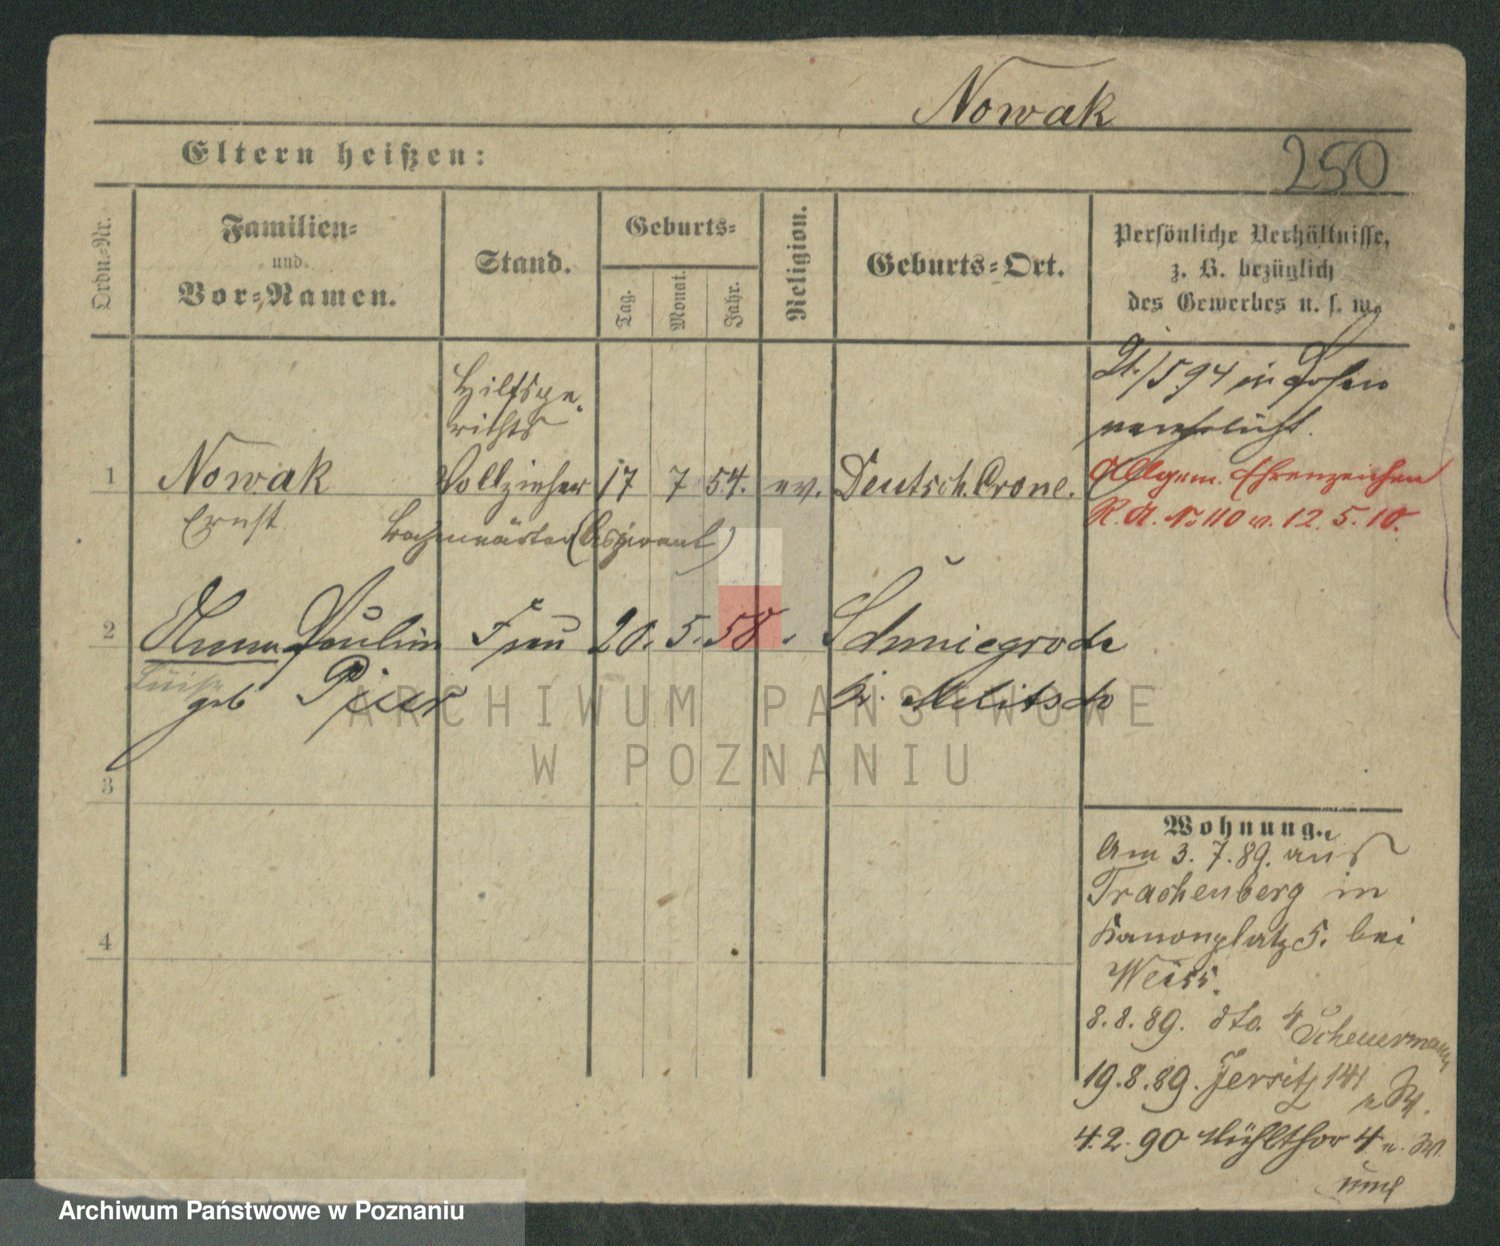 Nowak
Eltern heißen:
250
Ordn.-Nr.
Familien-
und
Vor-Namen.
Stand.
Geburts-
Tag.
Monat.
Jahr.
Religion.
Geburts-Ort.
Persönliche Verhältnisse,
z. B. bezüglich
des Gewerbes u. s. w.
21./5 94 in Posen
verehelicht.
Hilfsge-
richts
1 Nowak Vollzieher 17 7 54. ev. Deutsch. Crone.
Ernst
(Aspirant)
Allgem. Ehrenzeichen
R. A. No 110 v. 12. 5. 10.
2 Anna Paulin Frau 20. 5. 58. Schmiegrode
Luise
geb Pier Kr. Militsch
ARCHIWUM PAŃSTWOWE
W POZNANIU
3
Wohnung.
Am 3. 7. 89. aus
Trachenberg in
Kanonplatz 5. bei
Weiss.
8. 8. 89. dto. 4 Scheuermann
19. 8. 89. Jersitz 141
4. 2. 90 Mühlthor 4
4
Archiwum Państwowe w Poznaniu